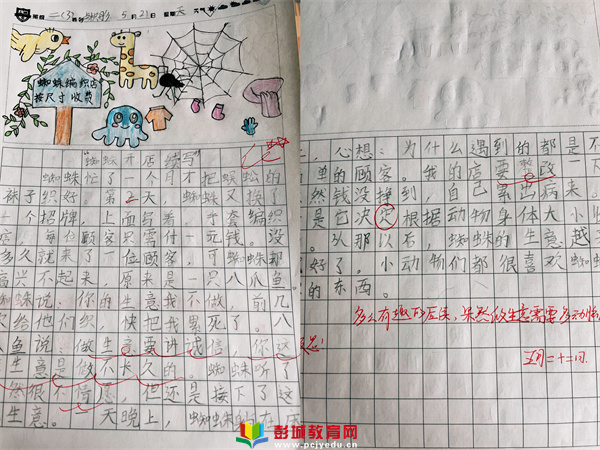 班级 二(3) 姓名 5月21日 星期天 天气
蜘蛛编织店
按尺寸收费
"蜘蛛开店 续写"
蜘蛛忙了一个月才把蜈蚣的
袜子织好。第2天,蜘蛛又换了
一个招牌,上面写着:手套编织
店,每位顾客只需付一元钱。没
多久就来了一位顾客,可蜘蛛却
高兴不起来,原来是一只八爪鱼
蜘蛛说:你的生意我不做,前几
次给他们织,快把我累死了。八
鱼说:做生意要讲诚信,你这
生意是做不长久的。蜘蛛听了
然很不情愿,但还是接下了这
生意。一天晚上,蜘蛛
上,心想:为什么遇到的都是不
单的顾客。我的店要整改一下
然钱没挣到,自己累出病来。
是它决定根据动物身体大小收
。从那以后,蜘蛛的生意越
好了。小动物们都很喜欢蜘蛛
的东西。
多么有趣的店呀,果然做生意需要多动脑
彭城教育网
www.pcjyedu.cn